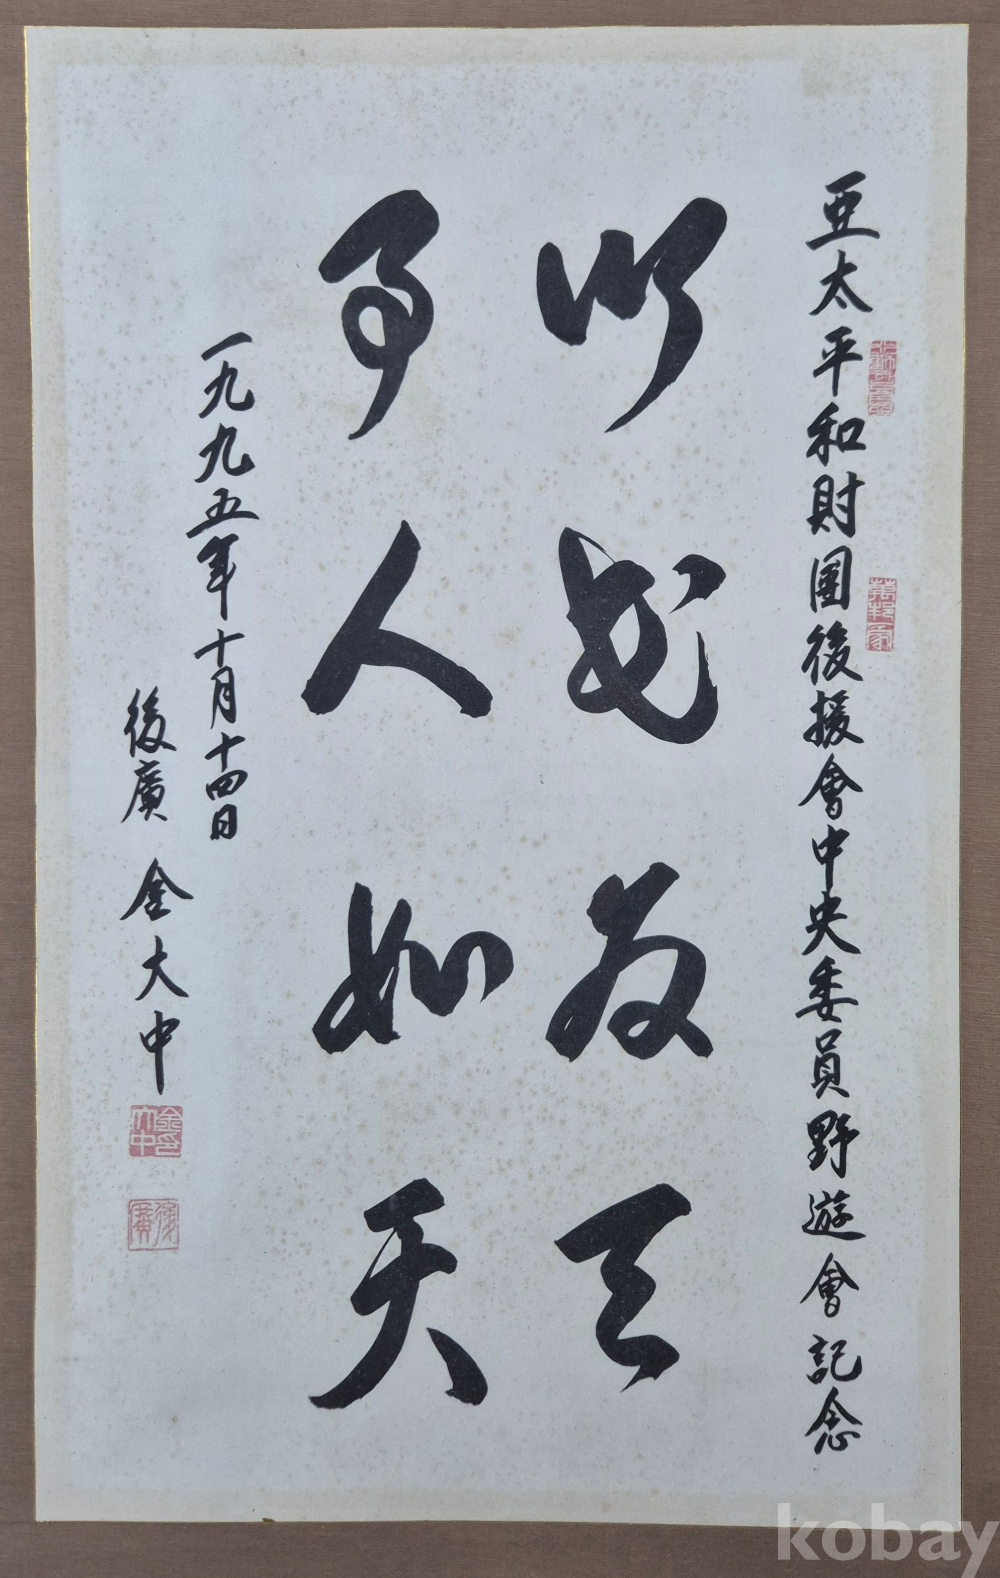 亞太平和財團後援會中央委員野遊會記念
以民爲天
事人如天
一九九五年十月十四日
後廣 金大中
金大中印
後廣
kobay